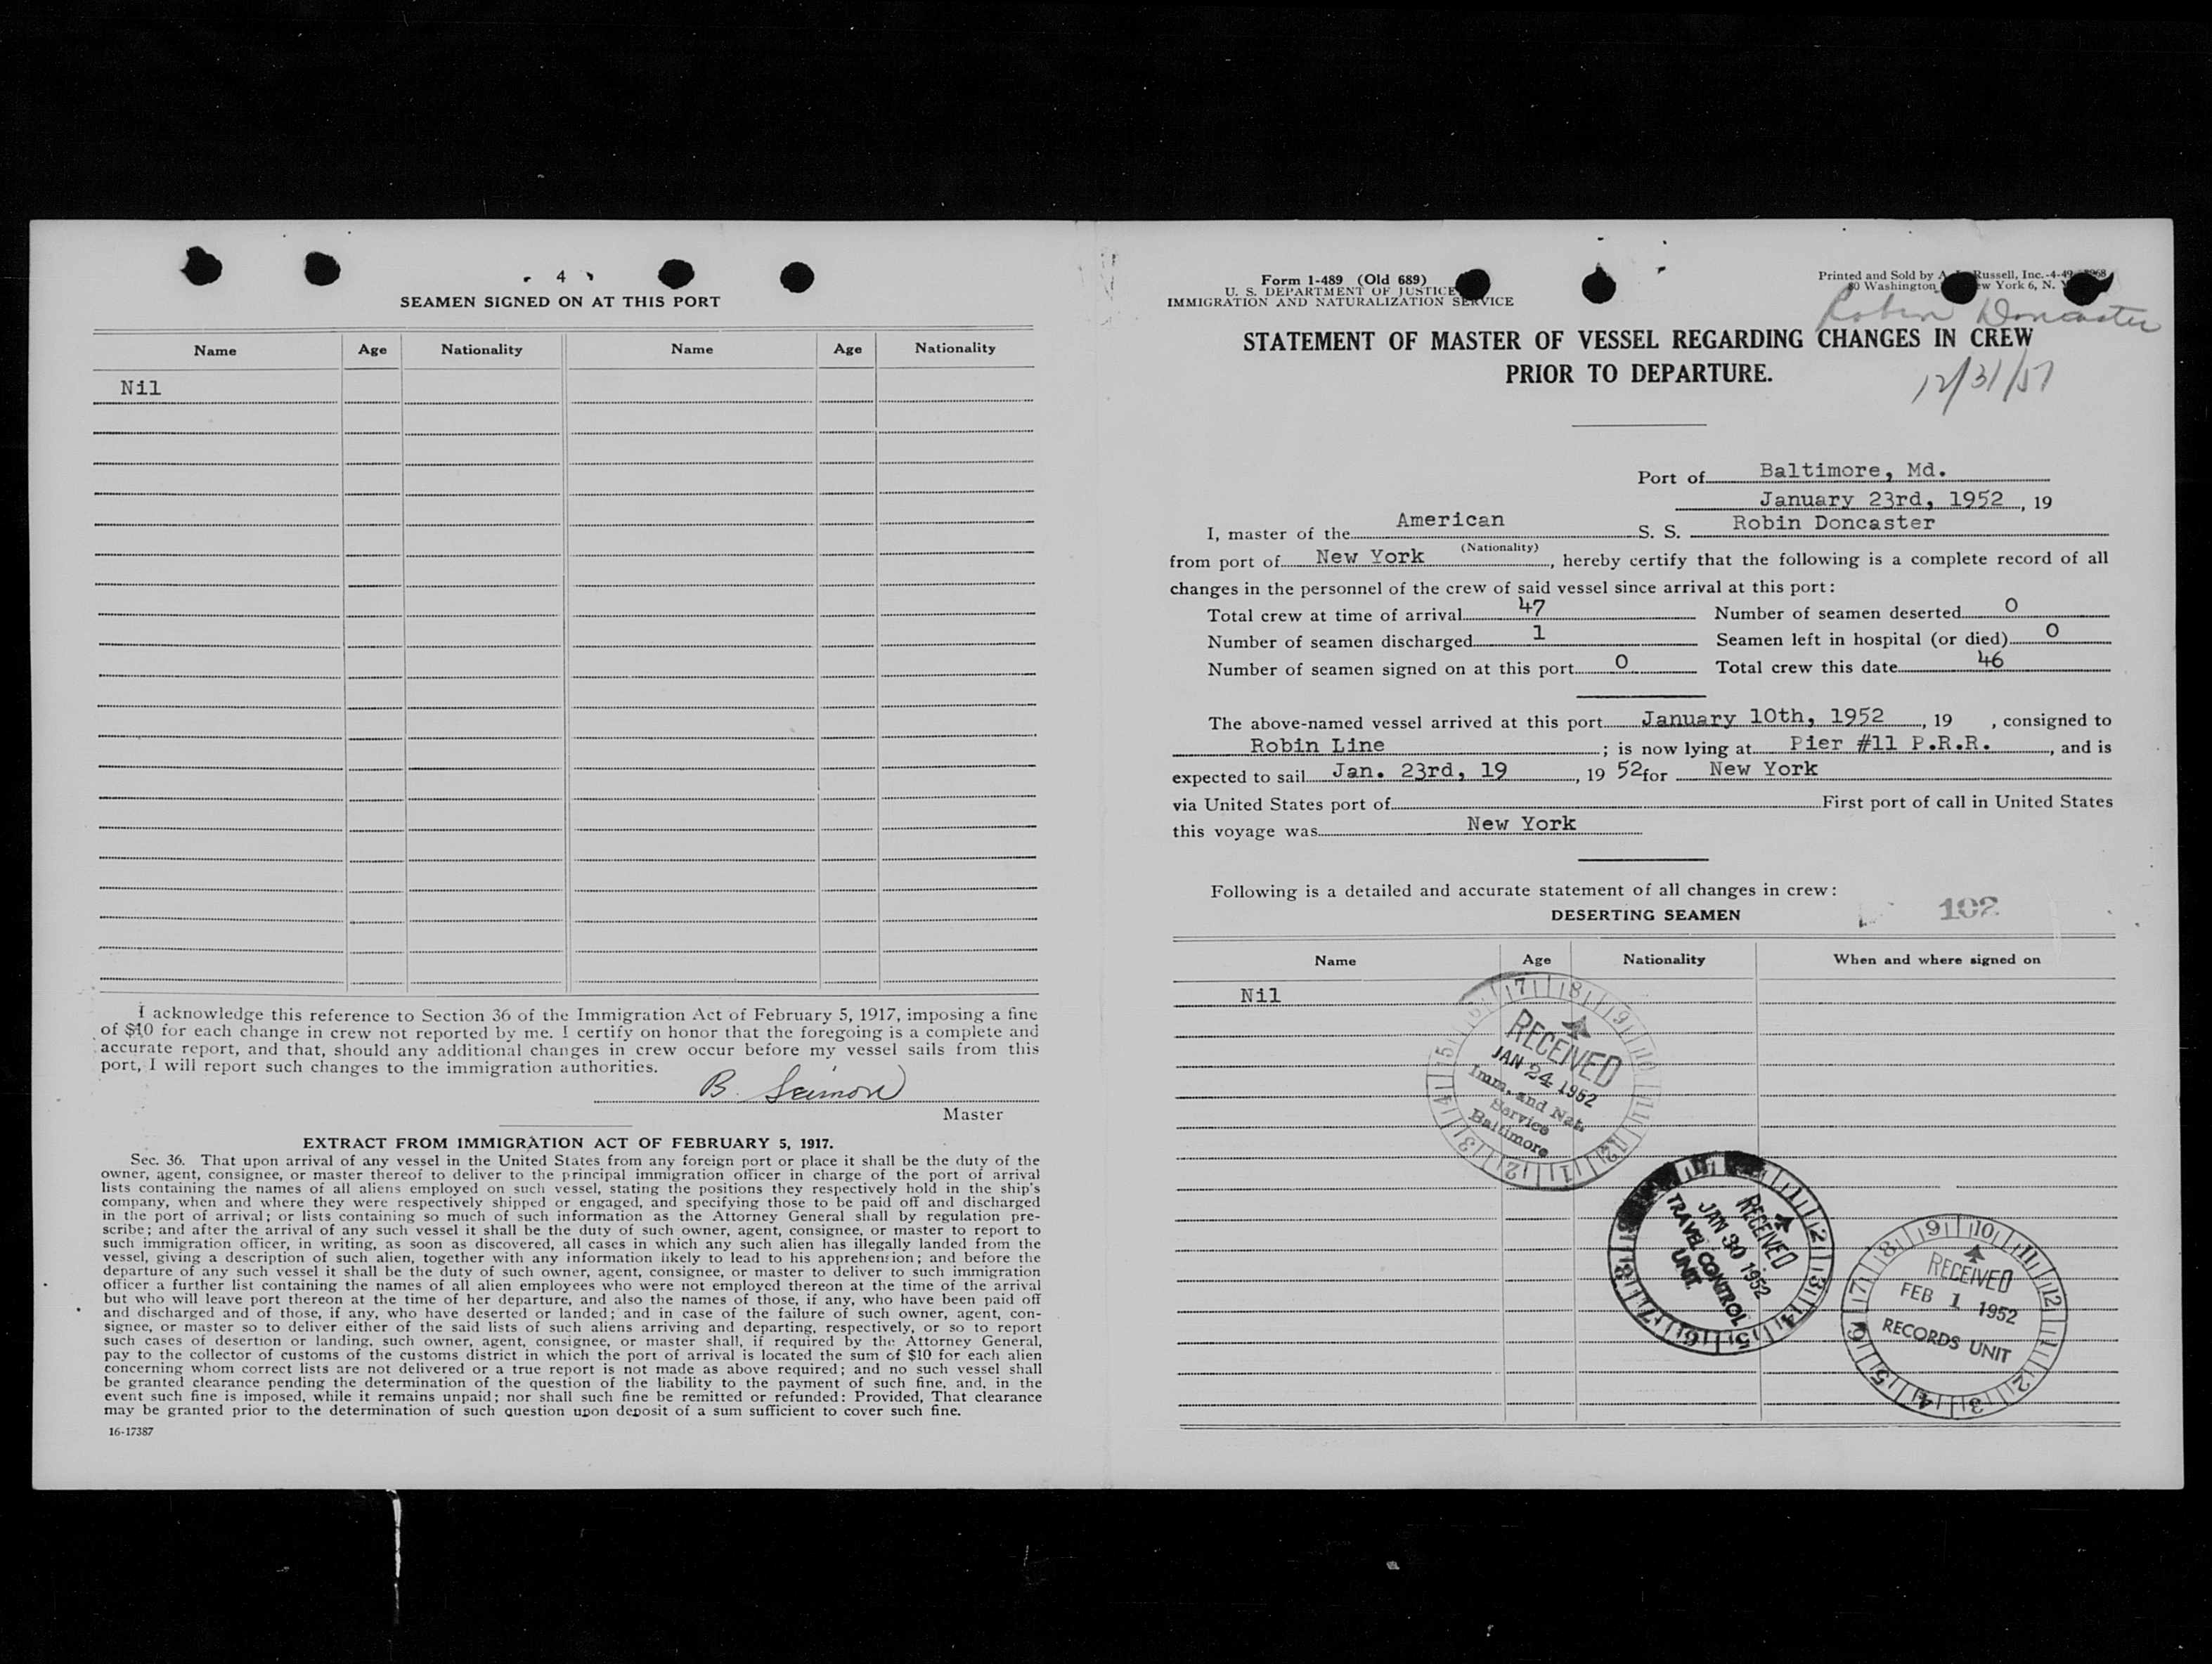 4
SEAMEN SIGNED ON AT THIS PORT
Name Age Nationality Name Age Nationality
Nil
I acknowledge this reference to Section 36 of the Immigration Act of February 5, 1917, imposing a fine
of $10 for each change in crew not reported by me. I certify on honor that the foregoing is a complete and
accurate report, and that, should any additional changes in crew occur before my vessel sails from this
port, I will report such changes to the immigration authorities.
B.
Master
EXTRACT FROM IMMIGRATION ACT OF FEBRUARY 5, 1917.
Sec. 36. That upon arrival of any vessel in the United States from any foreign port or place it shall be the duty of the
owner, agent, consignee, or master thereof to deliver to the principal immigration officer in charge of the port of arrival
lists containing the names of all aliens employed on such vessel, stating the positions they respectively hold in the ship's
company, when and where they were respectively shipped or engaged, and specifying those to be paid off and discharged
in the port of arrival; or lists containing so much of such information as the Attorney General shall by regulation pre-
scribe; and after the arrival of any such vessel it shall be the duty of such owner, agent, consignee, or master to report to
such immigration officer, in writing, as soon as discovered, all cases in which any such alien has illegally landed from the
vessel, giving a description of such alien, together with any information likely to lead to his apprehension; and before the
departure of any such vessel it shall be the duty of such owner, agent, consignee, or master to deliver to such immigration
officer a further list containing the names of all alien employees who were not employed thereon at the time of the arrival
but who will leave port thereon at the time of her departure, and also the names of those, if any, who have been paid off
and discharged and of those, if any, who have deserted or landed; and in case of the failure of such owner, agent, con-
signee, or master so to deliver either of the said lists of such aliens arriving and departing, respectively, or so to report
such cases of desertion or landing, such owner, agent, consignee, or master shall, if required by the Attorney General,
pay to the collector of customs of the customs district in which the port of arrival is located the sum of $10 for each alien
concerning whom correct lists are not delivered or a true report is not made as above required; and no such vessel shall
be granted clearance pending the determination of the question of the liability to the payment of such fine, and, in the
event such fine is imposed, while it remains unpaid; nor shall such fine be remitted or refunded: Provided, That clearance
may be granted prior to the determination of such question upon deposit of a sum sufficient to cover such fine.
16-17387
Form 1-489 (Old 689)
U. S. DEPARTMENT OF JUSTICE
IMMIGRATION AND NATURALIZATION SERVICE
Printed and Sold by Russell, Inc.-4-49
80 Washington New York 6, N. Y.
Robin Doncaster
STATEMENT OF MASTER OF VESSEL REGARDING CHANGES IN CREW
PRIOR TO DEPARTURE.
12/31/51
Port of Baltimore, Md.
January 23rd, 1952, 19
I, master of the American S. S. Robin Doncaster
(Nationality)
from port of New York, hereby certify that the following is a complete record of all
changes in the personnel of the crew of said vessel since arrival at this port:
Total crew at time of arrival 47 Number of seamen deserted 0
Number of seamen discharged 1 Seamen left in hospital (or died) 0
Number of seamen signed on at this port 0 Total crew this date 46
The above-named vessel arrived at this port January 10th, 1952, 19 , consigned to
Robin Line; is now lying at Pier #11 P.R.R., and is
expected to sail Jan. 23rd, 19, 19 52 for New York
via United States port of First port of call in United States
this voyage was New York
Following is a detailed and accurate statement of all changes in crew:
DESERTING SEAMEN
102
Name Age Nationality When and where signed on
Nil
RECEIVED
JAN 24 1952
Imm. and Nat.
Service
Baltimore
RECEIVED
JAN 30 1952
TRAVEL CONTROL
UNIT
RECEIVED
FEB 1 1952
RECORDS UNIT